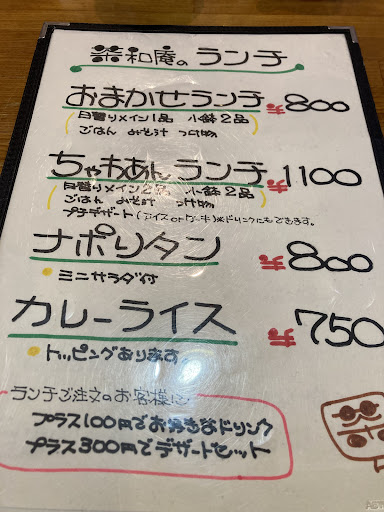 茶和庵のランチ
おまかせランチ ¥800
(日替りメイン1品 小鉢2品
ごはん みそ汁 つけ物)
ちゃわあんランチ ¥1100
(日替りメイン2品 小鉢2品
ごはん みそ汁 つけ物
プチデザート(アイスorケーキ)※ドリンクにもできます。)
ナポリタン ¥800
ミニサラダ付
カレーライス ¥750
トッピングあります
ランチご注文のお客様に
プラス100円でお好きなドリンク
プラス300円でデザートセット